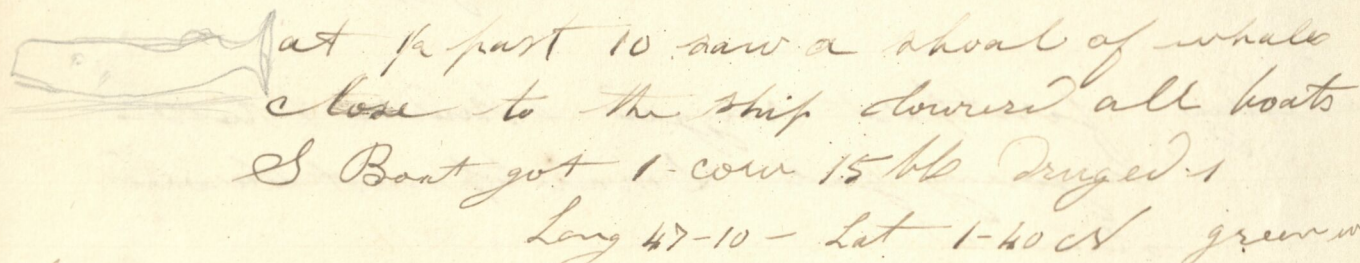 at ½ past 10 saw a shoal of whales
close to the ship lowered all boats
S Boat got 1 cow 15 bb Druged 1
Long 47-10 - Lat 1-40 N green w